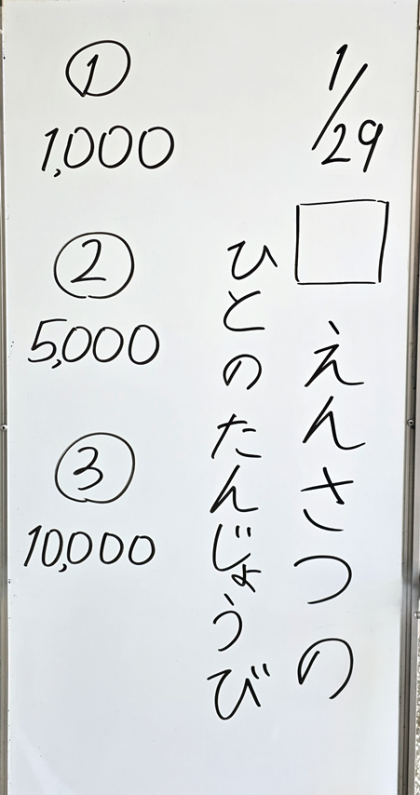 1/29
□えんさつの
ひとのたんじょうび
①
1,000
②
5,000
③
10,000